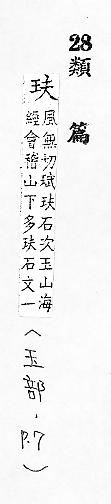 28類篇
玞 風無切珷玞石次玉山海
經會稽山下多玞石文一
(玉部，p.7)